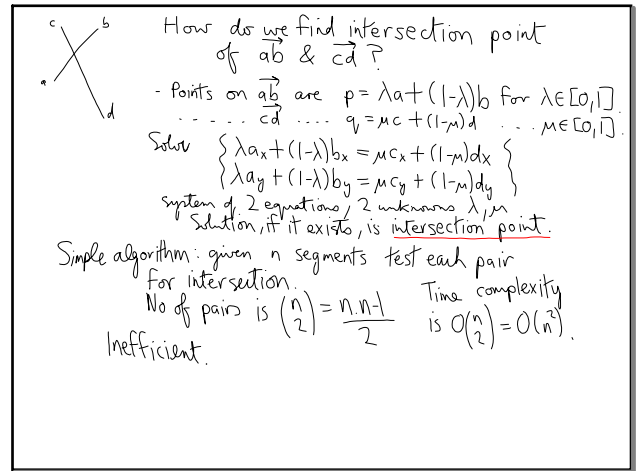 c b
a
d
How do we find intersection point
of ab⃗ & cd⃗ ?
- Points on ab⃗ are p = λa + (1-λ)b for λ∈[0,1].
. . . . . cd⃗ .... q = μc + (1-μ)d ... μ∈[0,1].
Solve { λaₓ + (1-λ)bₓ = μcₓ + (1-μ)dₓ
λa_y + (1-λ)b_y = μc_y + (1-μ)d_y }
system of 2 equations, 2 unknowns λ, μ
Solution, if it exists, is intersection point.
Simple algorithm: given n segments test each pair
for intersection.
No of pairs is (n 2) = n.n-1/2
Time complexity
is O(n 2) = O(n²).
Inefficient.